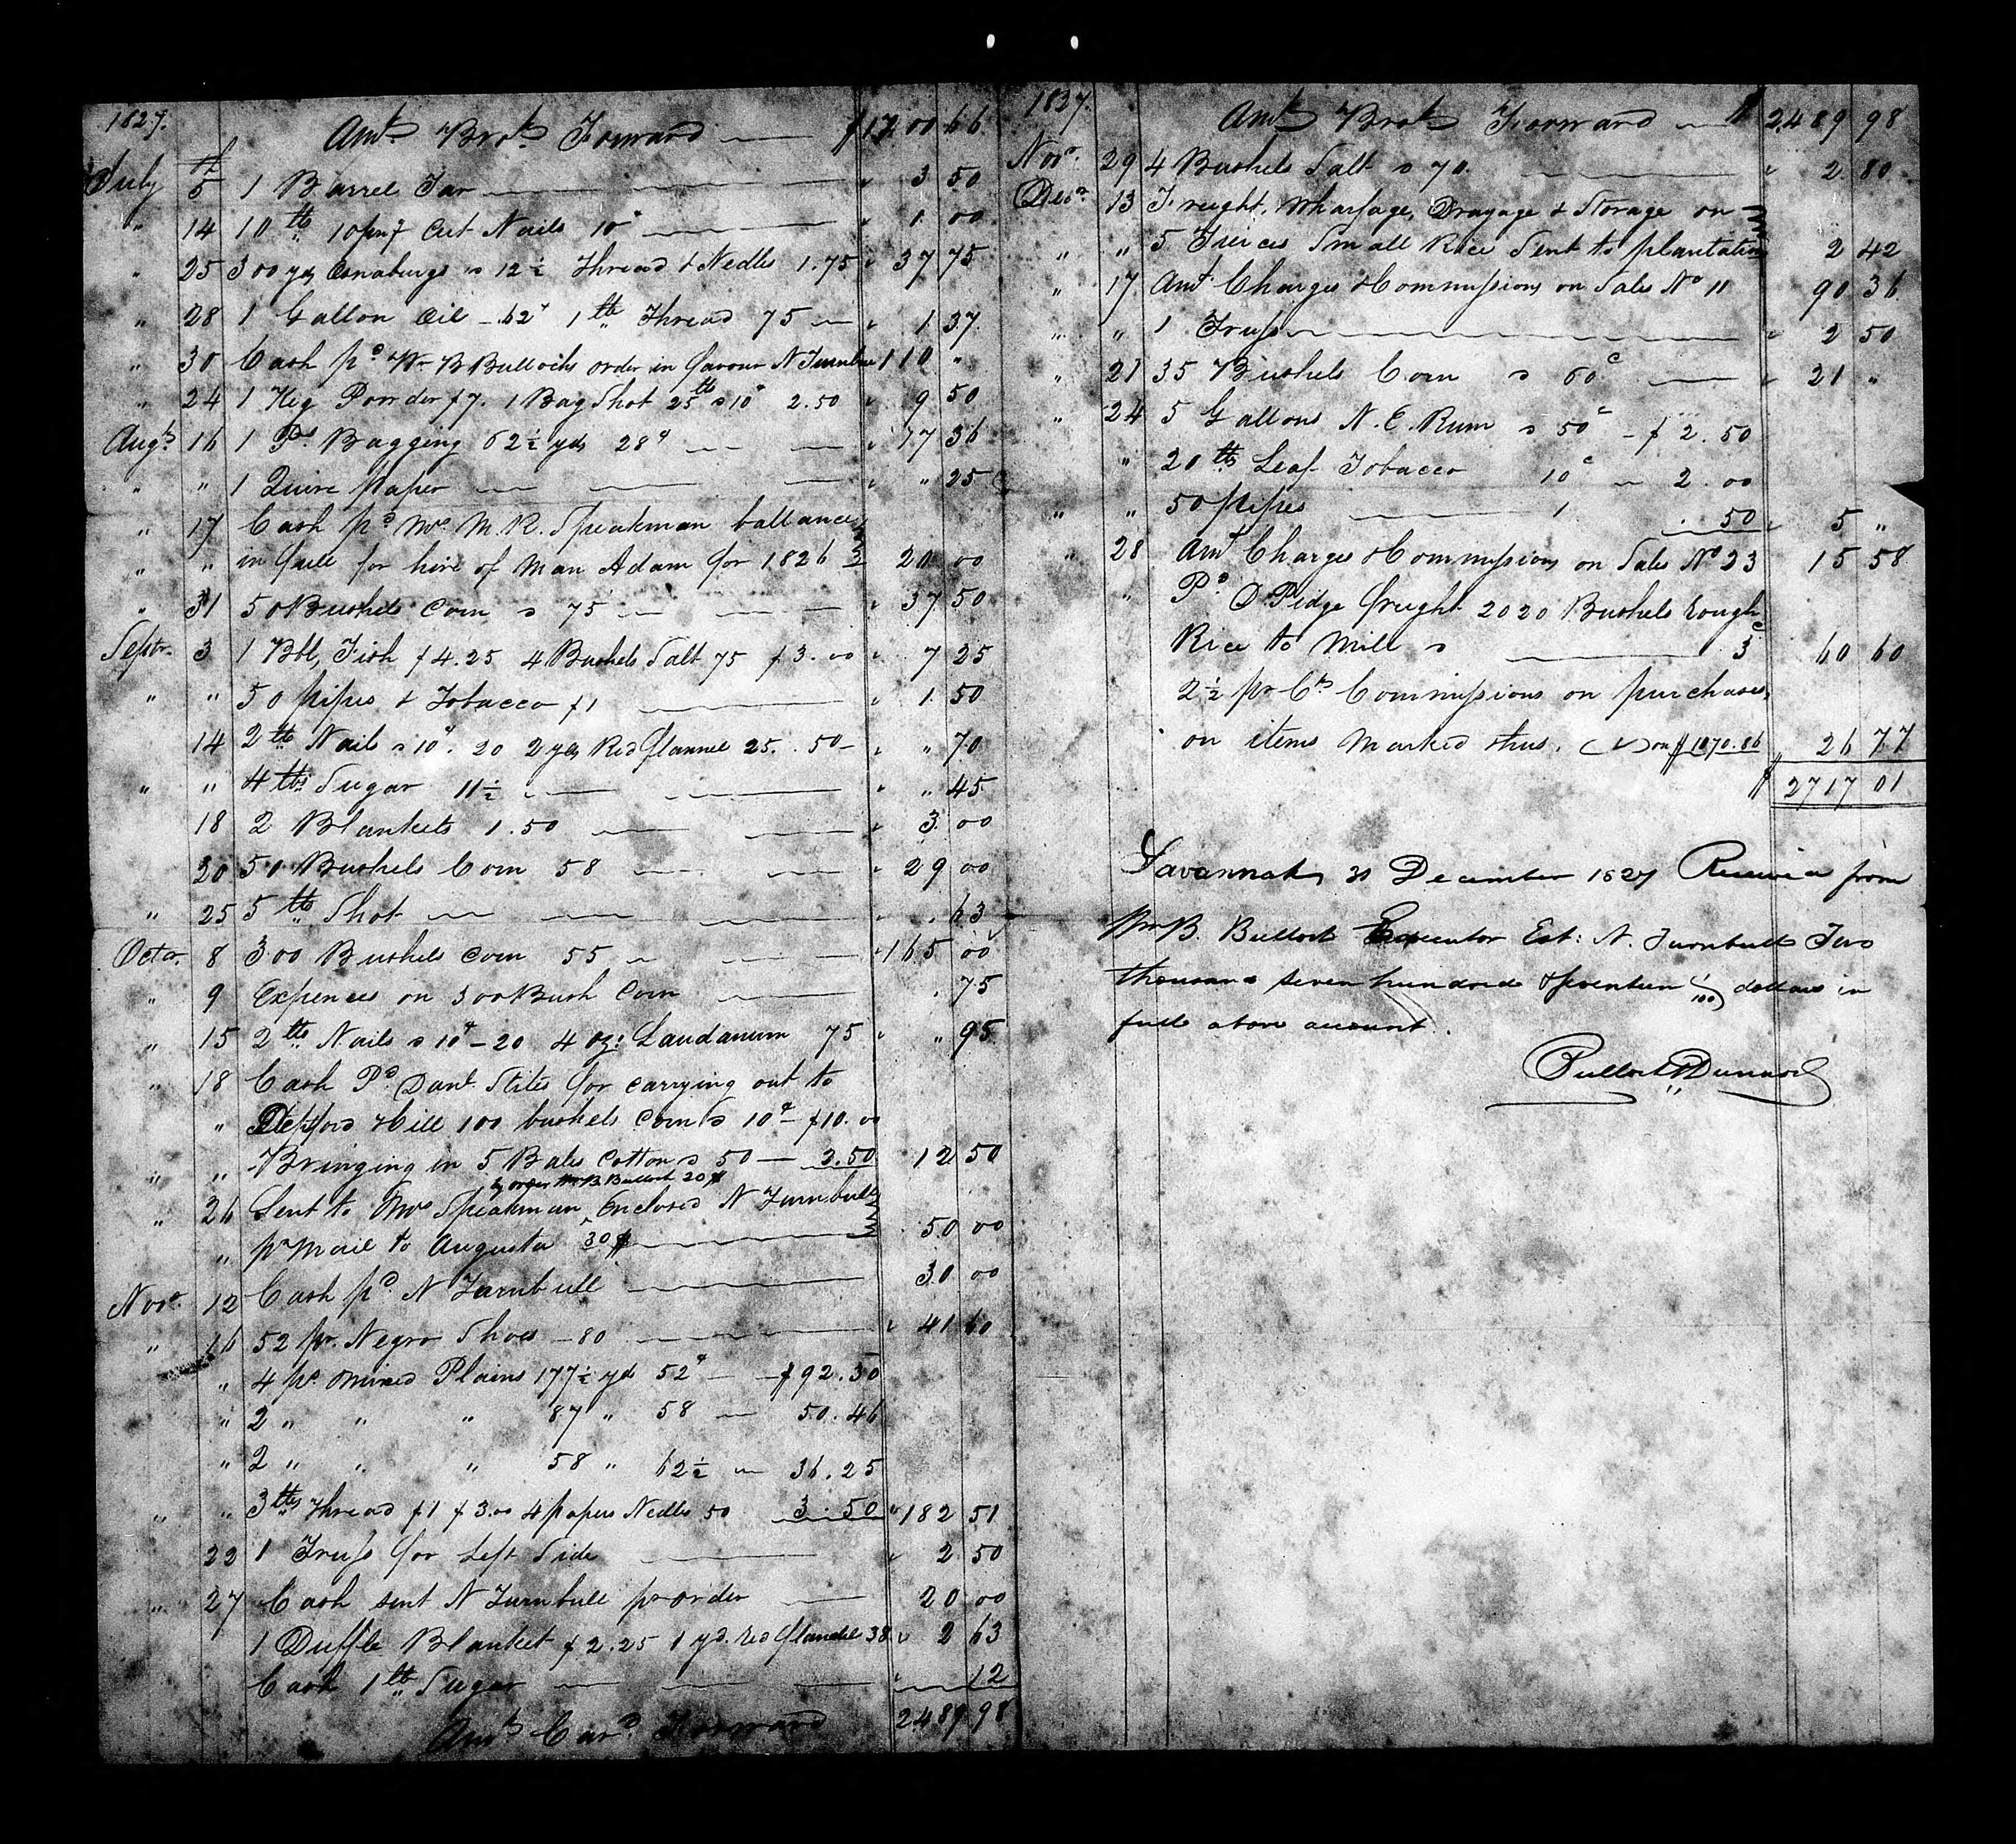 1827. Amt. Brot. Forward — $1700 66
July 5th 1 Barrel Tar — " 3 50
" 14 10 lb 10 pny Cut Nails 10c — " 1 00
" 25 300 yds Osnaburgs a 12½ Thread & Nedles 1.75 " 37 75
" 28 1 Gallon Oil — .62c 1 lb Thread 75 — " 1 37
" 30 Cash pd Wm B Bullochs order in favour N Turnbull 110 "
" 24 1 Keg Powder $7. 1 Bag Shot 25 lb a 10c 2.50 " 9 50
Augt. 16 1 Ps Bagging 62½ yds 28c — " 17 36
" " 1 Quire paper — " " 25
" 17 Cash pd Mrs M. R. Speakman ballance
" " in full for hire of Man Adam for 1826 20 00
" 31 50 Bushels Corn a 75 — " 37 50
Septr. 3 1 Bbl, Fish $4.25 4 Bushels Salt 75 $3.00 " 7 25
" " 50 pipes & Tobacco $1 — " 1 50
14 2 lb Nails a 10c. 20 2 yds Red flannel 25. .50 — " " 70
" " 4 lbs Sugar 11½ — " " 45
18 2 Blankets 1.50 — " 3 00
20 50 Bushels Corn 58 — " 29 00
" 25 5 lb Shot — " . 63
Octr. 8 300 Bushels Corn 55 — " 165 00
" 9 Expences on 300 Bush Corn — . 75
" 15 2 lbs Nails a 10c — 20 4 oz: Laudanum 75 " " 95
" 18 Cash Pd Danl. Stites for carrying out to
" Deptford Hill 100 bushels Corn a 10c — $10.00
" " Bringing in 5 Bales Cotton a 50 — 2.50 12 50
by order Wm B. Bulloch 20$
" 26 Sent to Mrs Speakman Enclosed N Turnbull
" pr Mail to Augusta 30$ — 50 00
Novr. 12 Cash pd N Turnbull — 30 00
" 16 52 pr. Negro Shoes — 80 — " 41 60
" 4 ps mixed Plains 177½ yds 52c — $92.30
" 2 " " " 87 " 58 — 50.46
" 2 " " " 58 " 62½ — 36.25
" " 3 lbs Thread $1 $3.00 4 papers Nedles 50 3.50 " 182 51
22 1 Truss for Left Side — " 2 50
" 27 Cash sent N Turnbull pr order — 20 00
1 Duffle Blanket $2.25 1 yd. red flannel 38 " 2 63
Cash 1 lb Sugar — " 12
Amt Card Forward 2489 98
1827. Amt Brot Forward — $ 2489 98
Novr. 29 4 Bushels Salt a 70. — " 2 80
Decr. 13 Freight, Wharfage, Drayage & Storage on
" " 5 Tierces Small Rice Sent to plantation 2 42
" 17 Amt Charges & Commissions on Sales No 11 90 36
" " 1 Truss — " 2 50
" 21 35 Bushels Corn a 60c — " 21 "
" 24 5 Gallons N. E. Rum a 50c — $2.50
" 20 lbs Leaf Tobacco 10c — 2.00
" " 50 pipes — 1 .50 " 5 "
" 28 Amt Charges & Commissions on Sales No 23 15 58
" Pd O Pidge freight 2020 Bushels Rough
Rice to Mill a — 3c 60 60
2½ pr Ct Commissions on purchases,
on items marked thus. (✓) on $1070.86 " 26 77
$ 2717 01
Savannah 31 December 1827 Received from
Wm B. Bulloch Executor Est: N. Turnbull Two
thousand seven hundred & seventeen 1/100 dollars in
full above account.
Bulloch & Dunwody